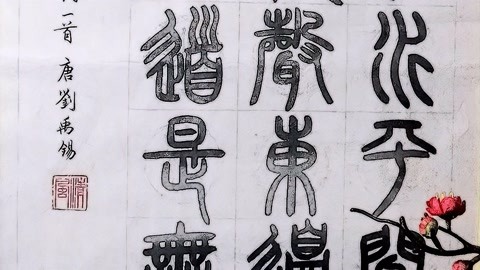 水平聞
聲東邊
道是無
一首 唐 劉禹錫